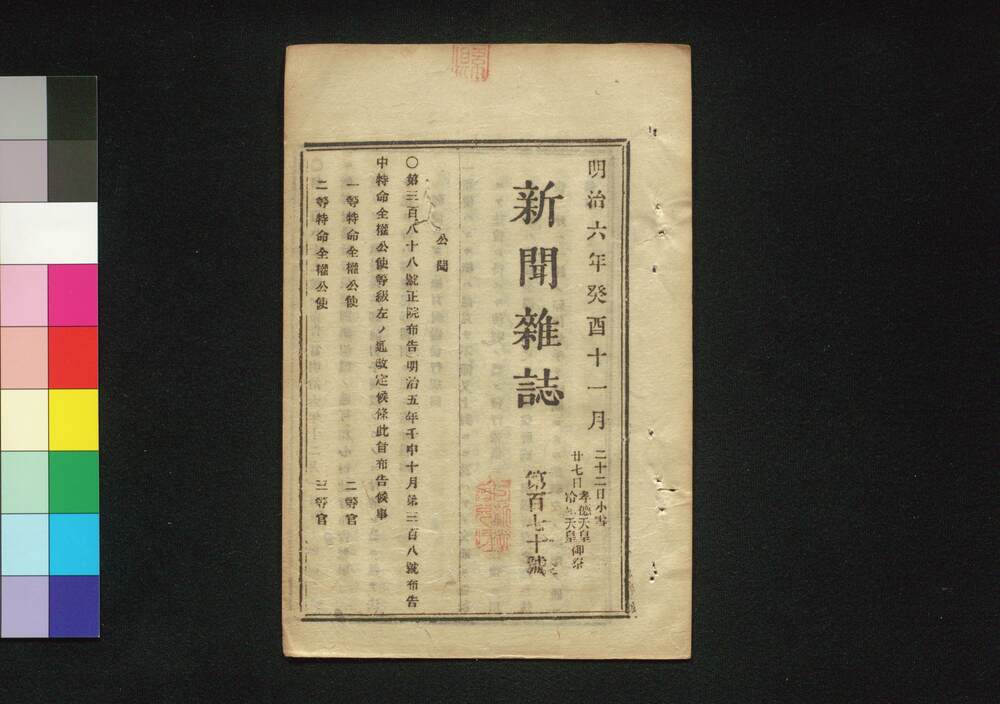 明治六年癸酉十一月
二十二日小雪
廿七日
孝德天皇
冷泉天皇
御祭
新聞雜誌
第百七十號
公聞
〇第三百八十八號正院布告明治五年壬申十月第三百八號布告
中特命全權公使等級左ノ通改定候條此旨布告候事
一等特命全權公使 二等官
二等特命全權公使 三等官